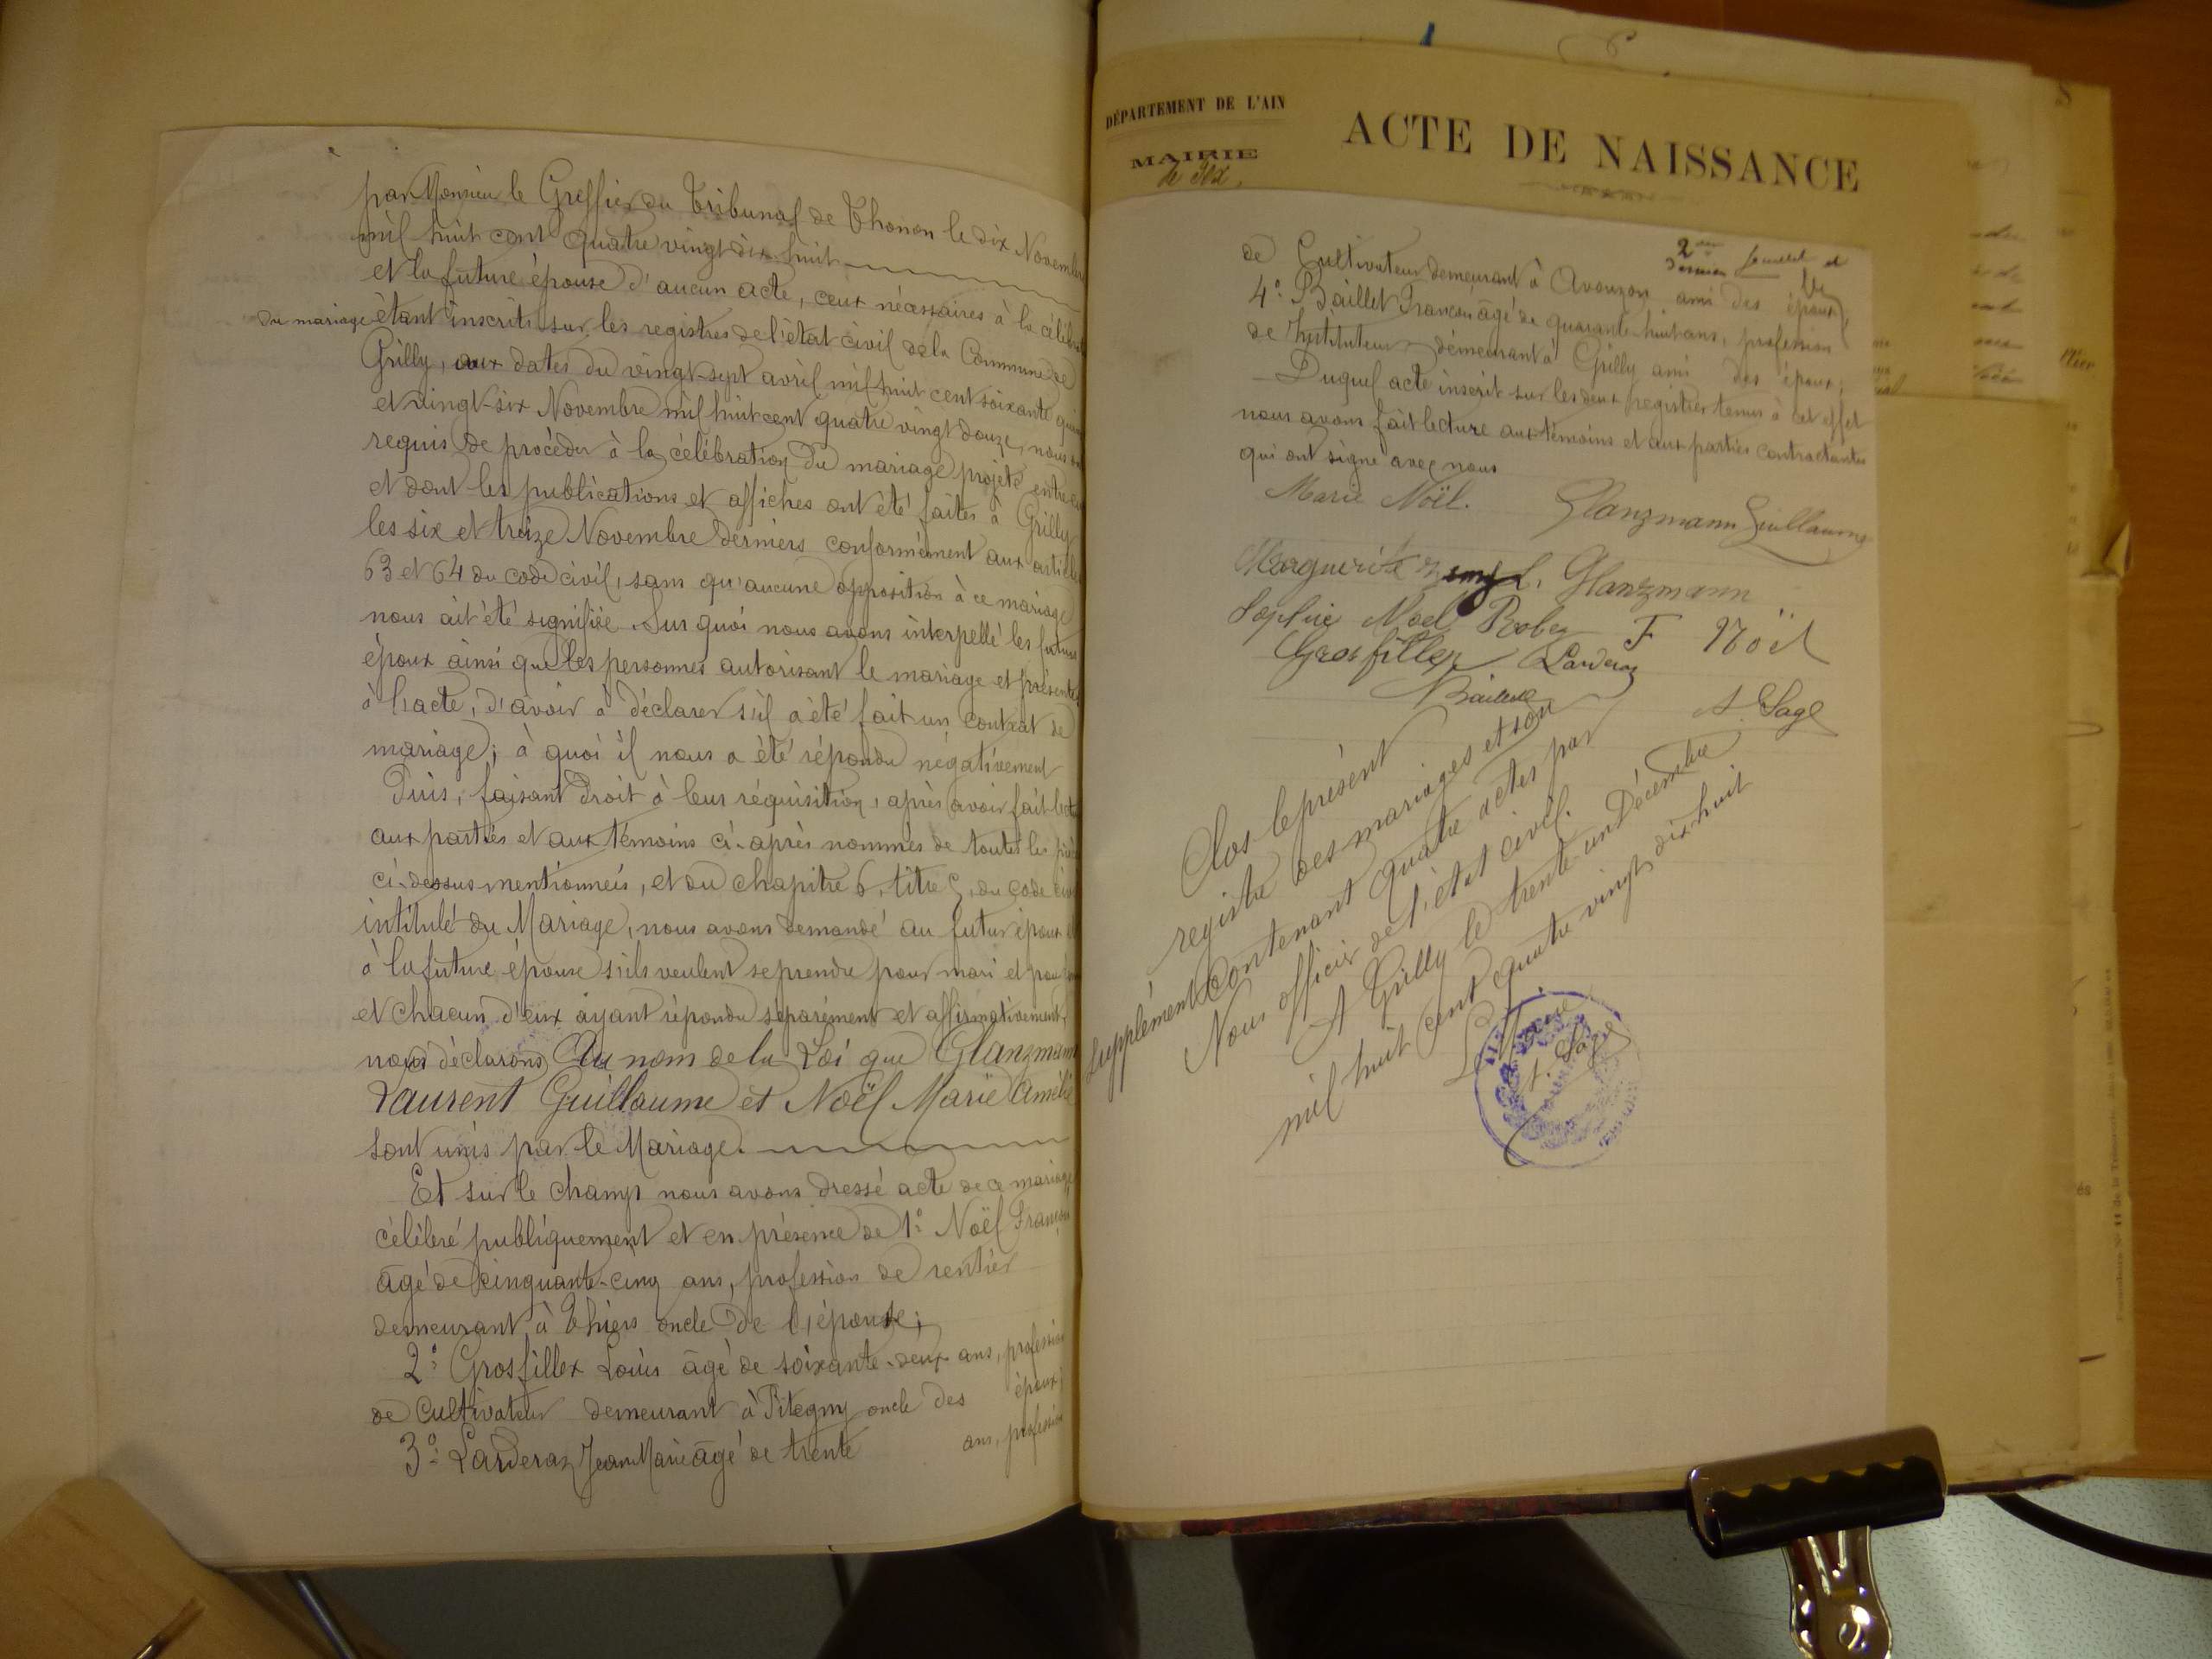 par Monsieur le Greffier du Tribunal de Thonon le dix Novembre
mil huit cent quatre vingt dix-huit
et la future épouse d'aucun acte, ceux nécessaires à la célébr
du mariage étant inscrits sur les registres de l'état civil de la Commune de
Grilly, aux dates du vingt-sept avril mil huit cent soixante
et vingt-six Novembre mil huit cent quatre vingt douze, nous
requis de procéder à la célébration du mariage projeté entre
et dont les publications et affiches ont été faites à Grilly
les six et treize Novembre derniers conformément aux articles
63 et 64 du code civil, sans qu'aucune opposition à ce mariage
nous ait été signifiée. Sur quoi nous avons interpellé les futurs
époux ainsi que les personnes autorisant le mariage et présentes
à l'acte, d'avoir à déclarer s'il a été fait un contrat de
mariage; à quoi il nous a été répondu négativement
Puis, faisant droit à leur réquisition, après avoir fait lect
aux parties et aux témoins ci-après nommés de toutes les
ci-dessus mentionnées, et du chapitre 6, titre 5, du code
intitulé du Mariage, nous avons demandé au futur époux
à la future épouse s'ils veulent se prendre pour mari et pour
et chacun d'eux ayant répondu séparément et affirmativement,
nous déclarons Au nom de la Loi que Glanzmann
Laurent Guillaume et Noël Marie Amélie
sont unis par le Mariage.
Et sur le champ nous avons dressé acte de ce mariage
célébré publiquement et en présence de 1° Noël François
âgé de cinquante-cinq ans, profession de rentier
demeurant à Thiers oncle de l'épouse;
2° Grosfillex Louis âgé de soixante-deux ans, profession
de Cultivateur demeurant à Pitegny oncle des époux;
3° Larderaz Jean Marie âgé de trente ans, profession
DÉPARTEMENT DE L'AIN
MAIRIE
de Gex
ACTE DE NAISSANCE
2me
dernier feuillet
de Cultivateur demeurant à Avouzon ami des époux;
4° Baillet François âgé de quarante-huit ans, profession
de Instituteur demeurant à Grilly ami des époux;
Duquel acte inscrit sur les deux registres tenus à cet effet
nous avons fait lecture aux témoins et aux parties contractantes
qui ont signé avec nous
Marie Noël. Glanzmann Guillaume
Marguerite L. Glanzmann
Sophie Noël F Noël
Grosfillex Larderaz
Baillet A. Sage
Clos le présent
registre des mariages et son
supplément contenant quatre actes par
Nous officier de l'état civil.
A Grilly le trente un Décembre
mil huit cent quatre vingt dix huit
Le Maire
A. Sage